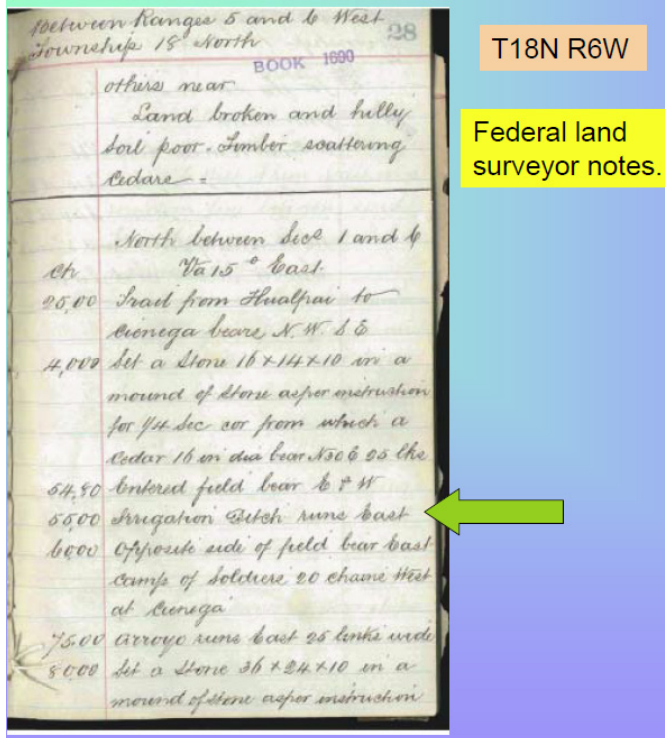 Between Ranges 5 and 6 West
Township 18 North
28
BOOK 1690
others near
Land broken and hilly
Soil poor. Timber scattering
Cedars
North between Secs 1 and 6
Ch Va 15° East.
25,00 Trail from Hualpai to
Cienega bears N.W. S E
4,000 Set a Stone 16 x 14 x 10 in a
mound of Stone as per instruction
for 1/4 Sec cor from which a
Cedar 16 in dia bear N30E 25 lks
54,80 Entered field bear E & W
55,00 Irrigation Ditch runs East
60,00 Opposite side of field bear East
Camp of Soldiers 20 chains West
at Cienega
75.00 Arroyo runs East 25 links wide
80,00 Set a Stone 36 x 24 x 10 in a
mound of stone as per instruction
T18N R6W
Federal land
surveyor notes.